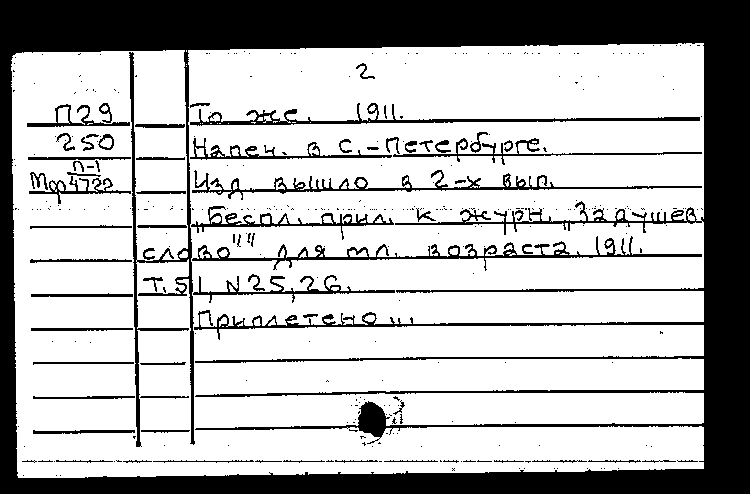 2
П29 То же. 1911.
250 Напеч. в С.-Петербурге.
Мф П-1/4722 Изд. вышло в 2-х вып.
„Беспл. прил. к журн. „Задушев.
слово"" для мл. возраста. 1911.
Т. 51, N25, 26.
Приплетено...